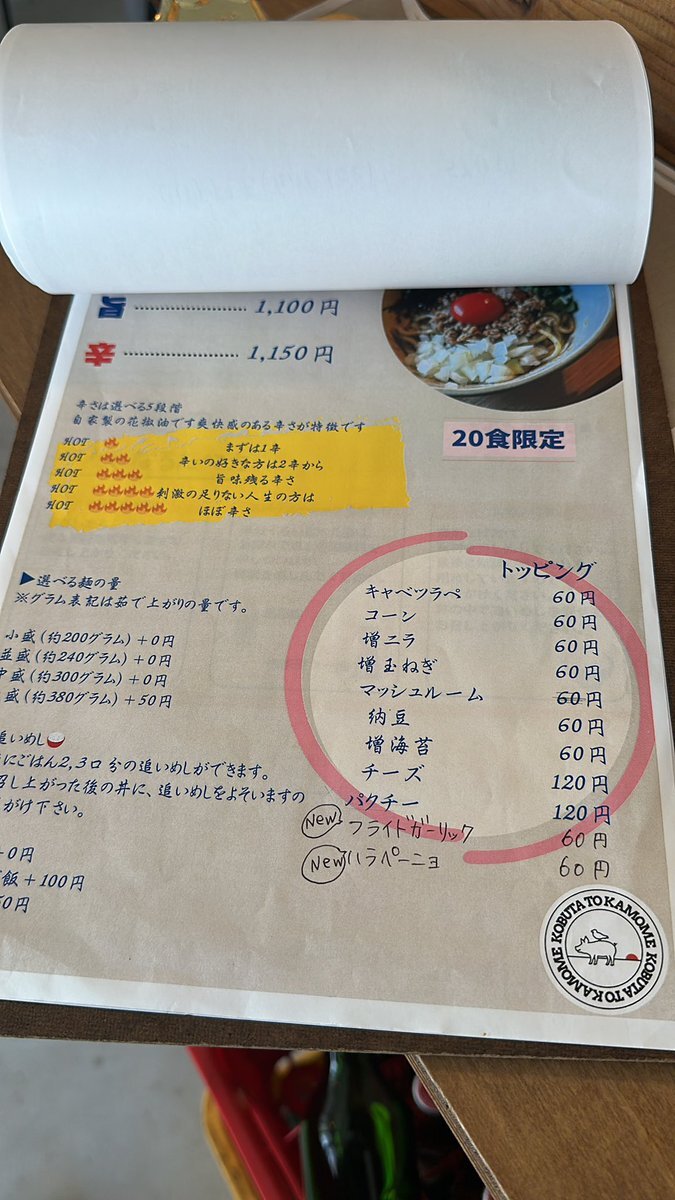 1,100 円
辛 1,150 円
辛さは選べる5段階
自家製の花椒油です爽快感のある辛さが特徴です
HOT まずは1辛
HOT 辛いの好きな方は2辛から
HOT 旨味残る辛さ
HOT 刺激の足りない人生の方は
HOT ほぼ辛さ
20食限定
▶選べる麺の量
※グラム表記は茹で上がりの量です。
小盛(約200グラム)+0円
並盛(約240グラム)+0円
中盛(約300グラム)+0円
盛(約380グラム)+50円
追いめし
にごはん2,3口分の追いめしができます。
召し上がった後の丼に、追いめしをよそいますの
がけ下さい。
+0円
飯+100円
50円
トッピング
キャベツラペ 60円
コーン 60円
増ニラ 60円
増玉ねぎ 60円
マッシュルーム 60円
納豆 60円
増海苔 60円
チーズ 120円
パクチー 120円
New フライドガーリック 60円
New ハラペーニョ 60円
KOBUTA TO KAMOME KOBUTA TO KAMOME